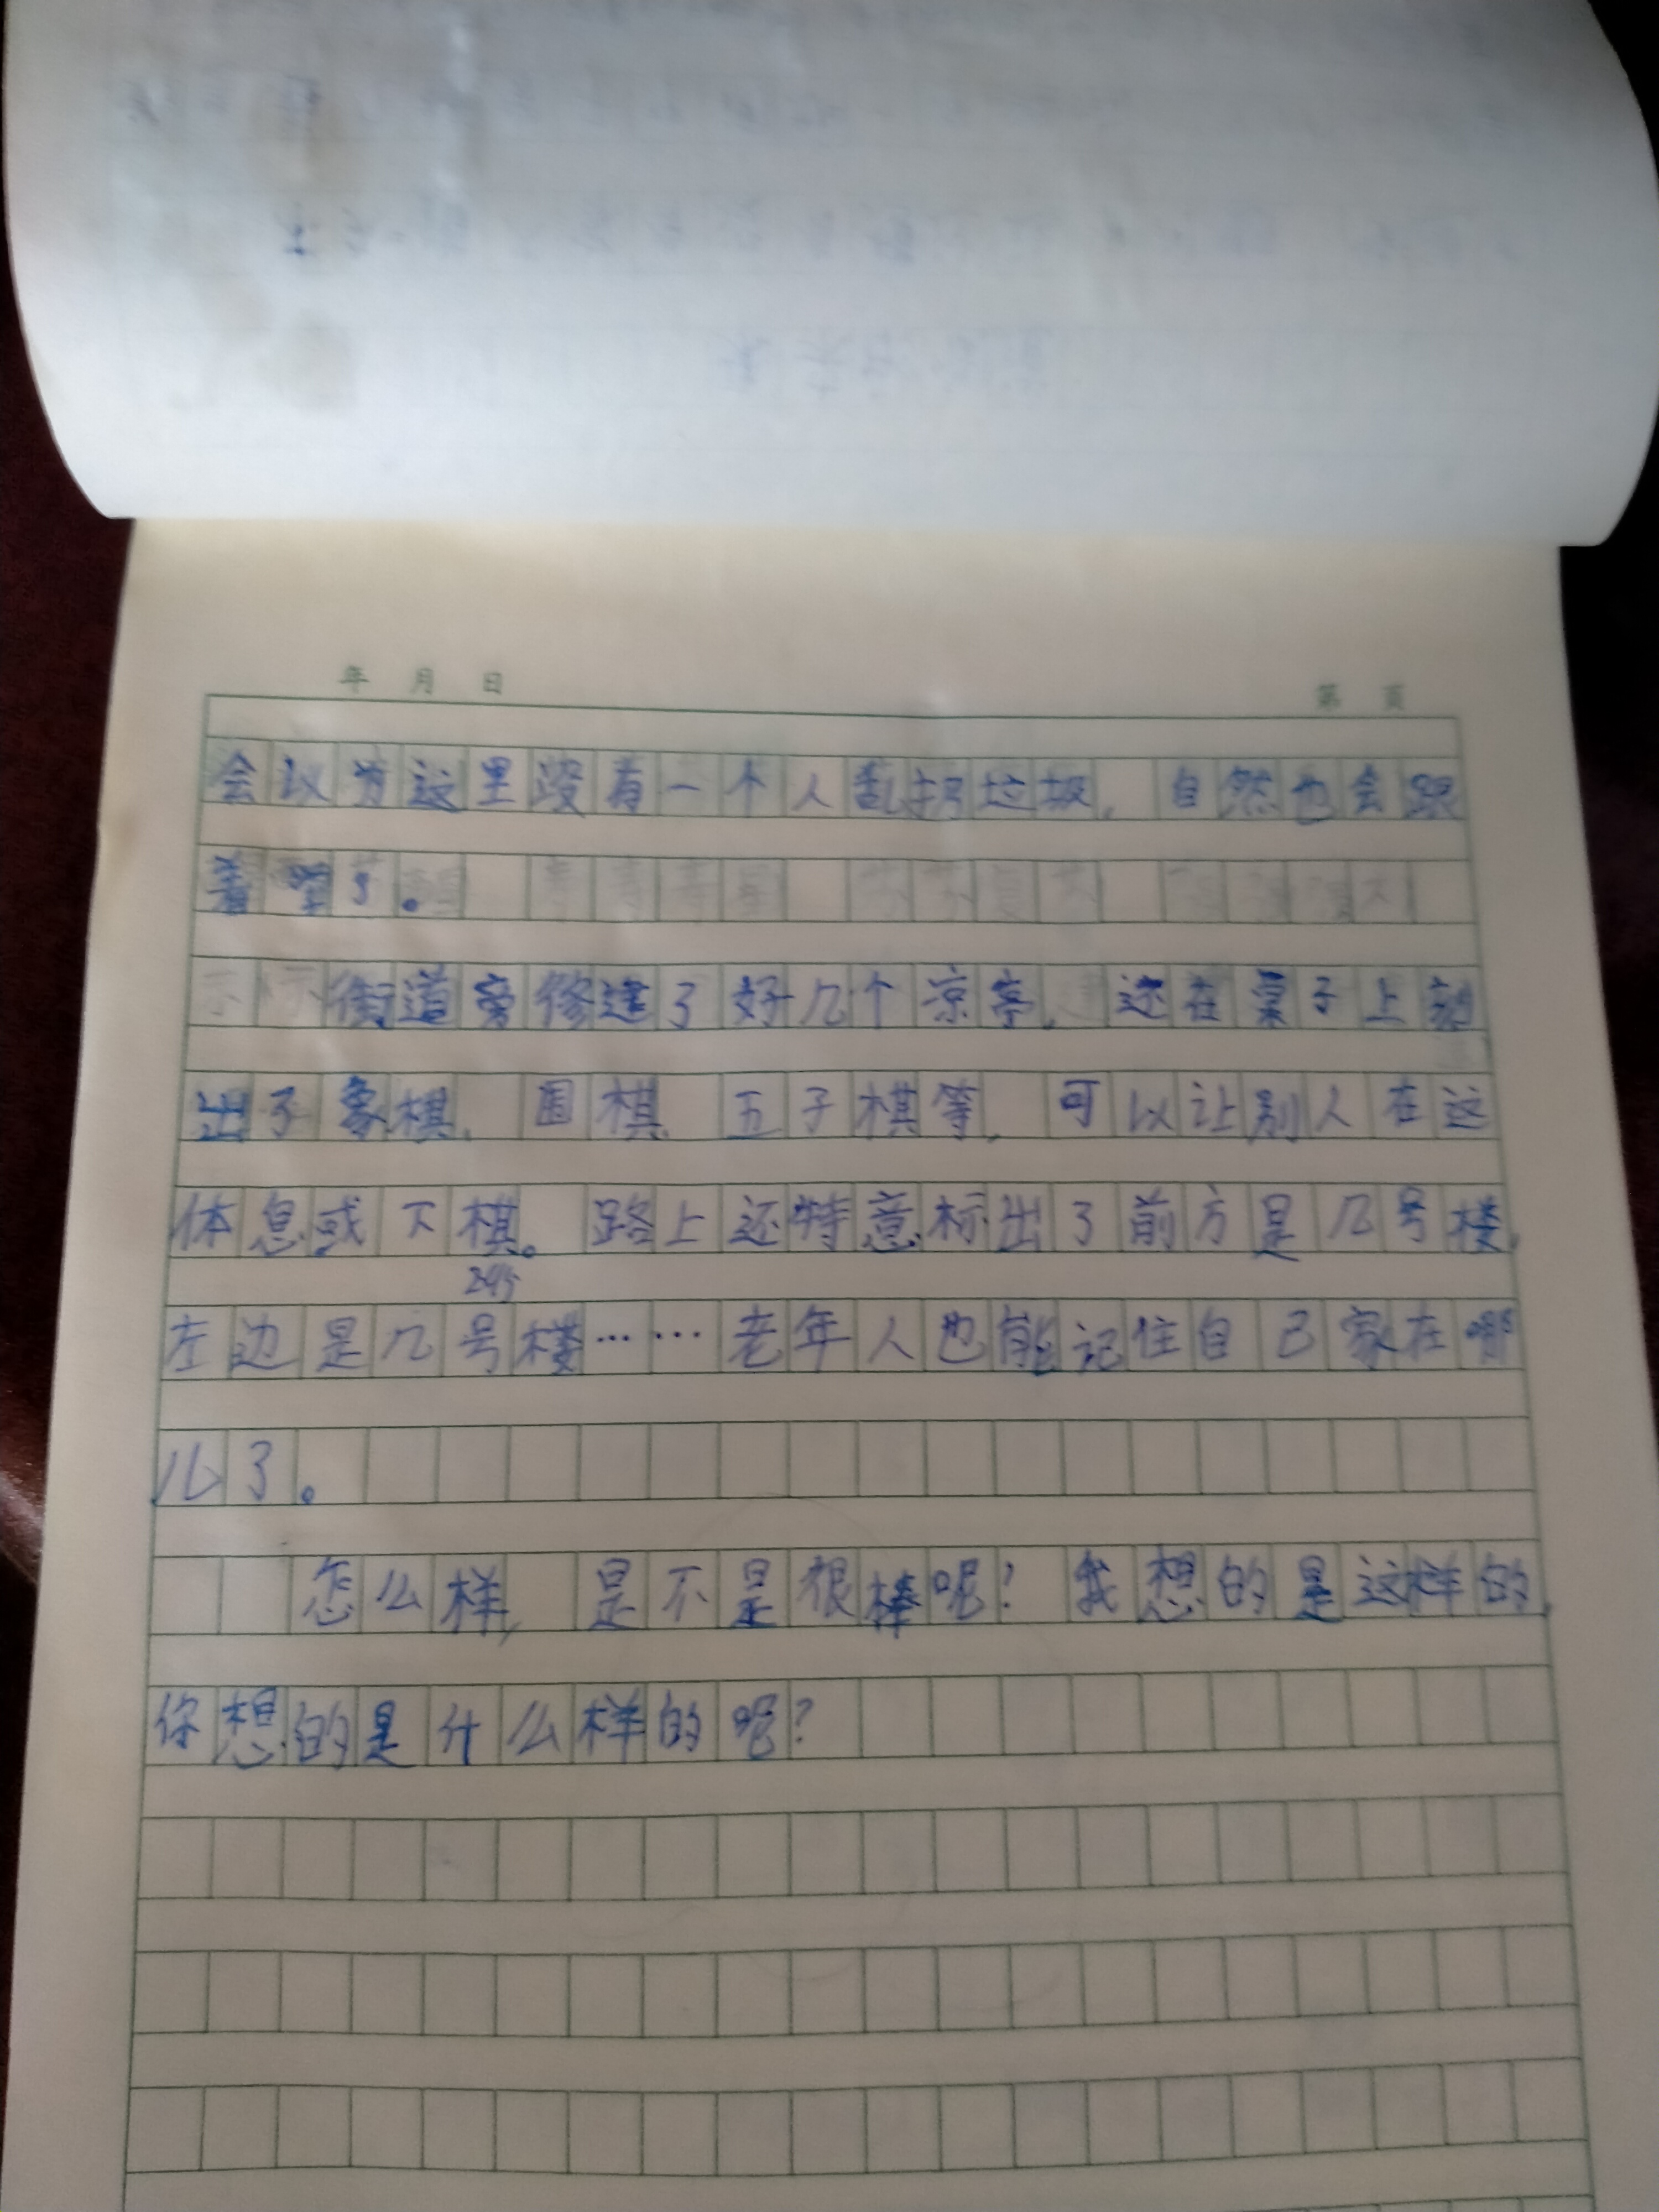 年 月 日
第 页
会以为这里没有一个人乱扔垃圾，自然也会跟
着学了。
街道旁修建了好几个凉亭，还在桌子上刻
出了象棋、围棋、五子棋等，可以让别人在这
休息或下棋。路上还特意标出了前方是几号楼，
245
左边是几号楼……老年人也能记住自己家在哪
儿了。
怎么样，是不是很棒呢？我想的是这样的，
你想的是什么样的呢？